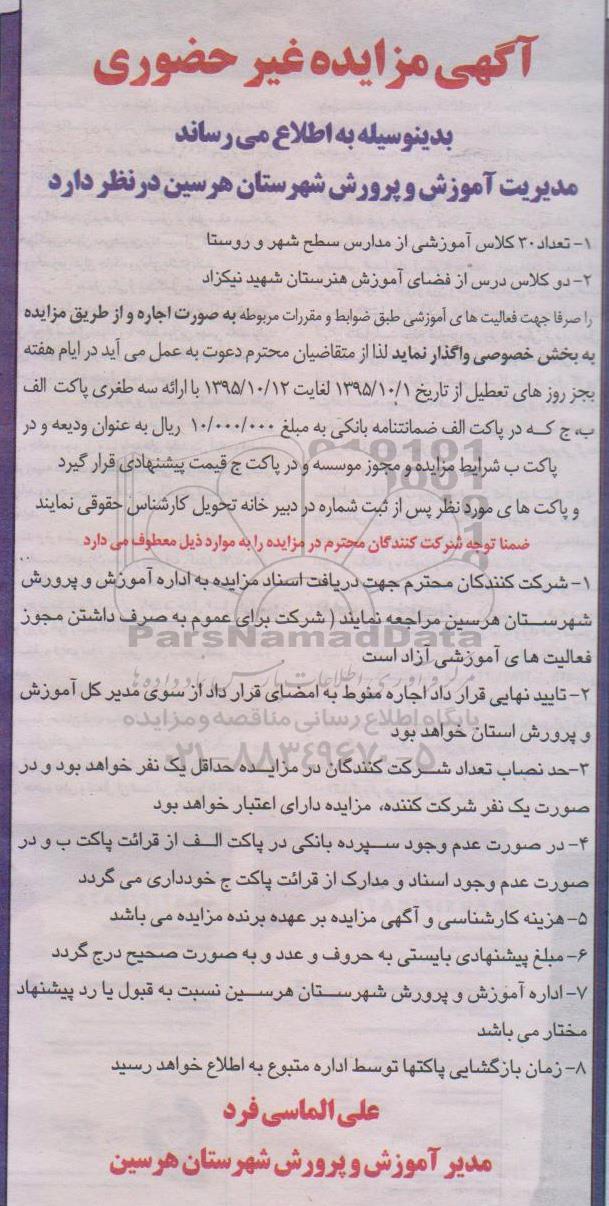 آگهی مزایده غیر حضوری
بدینوسیله به اطلاع می رساند
مدیریت آموزش و پرورش شهرستان هرسین در نظر دارد
۱- تعداد ۳۰ کلاس آموزشی از مدارس سطح شهر و روستا
۲- دو کلاس درس از فضای آموزش هنرستان شهید نیکزاد
را صرفا جهت فعالیت ها ی آموزشی طبق ضوابط و مقررات مربوطه به صورت اجاره و از طریق مزایده
به بخش خصوصی واگذار نماید لذا از متقاضیان محترم دعوت به عمل می آید در ایام هفته
بجز روز های تعطیل از تاریخ ۱۳۹۵/۱۰/۱ لغایت ۱۳۹۵/۱۰/۱۲ با ارائه سه طغری پاکت الف
ب، ج که در پاکت الف ضمانتنامه بانکی به مبلغ ۱۰/۰۰۰/۰۰۰ ریال به عنوان ودیعه و در
پاکت ب شرایط مزایده و مجوز موسسه و در پاکت ج قیمت پیشنهادی قرار گیرد
و پاکت ها ی مورد نظر پس از ثبت شماره در دبیر خانه تحویل کارشناس حقوقی نمایند
ضمنا توجه شرکت کنندگان محترم در مزایده را به موارد ذیل معطوف می دارد
۱- شرکت کنندگان محترم جهت دریافت اسناد مزایده به اداره آموزش و پرورش
شهرستان هرسین مراجعه نمایند ( شرکت برای عموم به صرف داشتن مجوز
فعالیت ها ی آموزشی آزاد است
۲- تایید نهایی قرار داد اجاره منوط به امضای قرار داد از سوی مدیر کل آموزش
و پرورش استان خواهد بود
۳-حد نصاب تعداد شرکت کنندگان در مزایده حداقل یک نفر خواهد بود و در
صورت یک نفر شرکت کننده، مزایده دارای اعتبار خواهد بود
۴- در صورت عدم وجود سپرده بانکی در پاکت الف از قرائت پاکت ب و در
صورت عدم وجود اسناد و مدارک از قرائت پاکت ج خودداری می گردد
۵- هزینه کارشناسی و آگهی مزایده بر عهده برنده مزایده می باشد
۶- مبلغ پیشنهادی بایستی به حروف و عدد و به صورت صحیح درج گردد
۷- اداره آموزش و پرورش شهرستان هرسین نسبت به قبول یا رد پیشنهاد
مختار می باشد
۸- زمان بازگشایی پاکتها توسط اداره متبوع به اطلاع خواهد رسید
علی الماسی فرد
مدیر آموزش و پرورش شهرستان هرسین
ParsNamadData
پایگاه اطلاع رسانی مناقصه و مزایده
۰۲۱-۸۸۳۴۹۶۷۰-۵